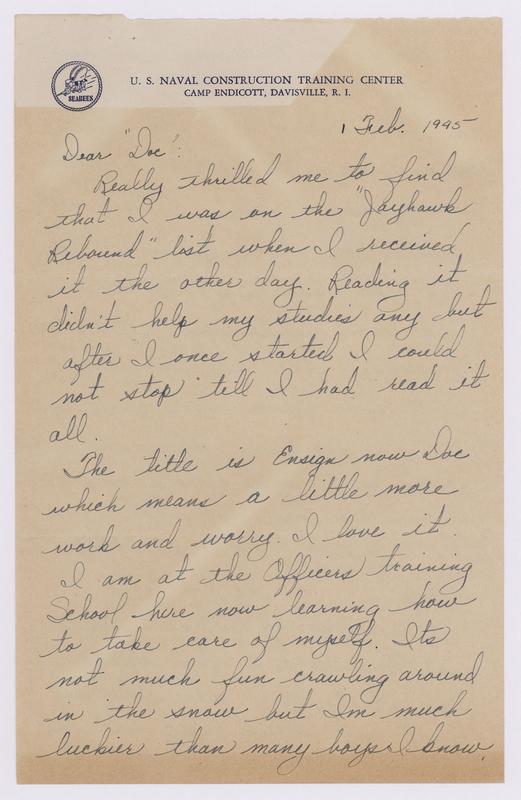 SEABEES
U. S. NAVAL CONSTRUCTION TRAINING CENTER
CAMP ENDICOTT, DAVISVILLE, R. I.
1 Feb. 1945
Dear "Doc":
Really thrilled me to find
that I was on the "Jayhawk
Rebound" list when I received
it the other day. Reading it
didn't help my studies any but
after I once started I could
not stop 'till I had read it
all.
The title is Ensign now Doc
which means a little more
work and worry. I love it.
I am at the Officers training
School here now learning how
to take care of myself. Its
not much fun crawling around
in the snow but I'm much
luckier than many boys I know.